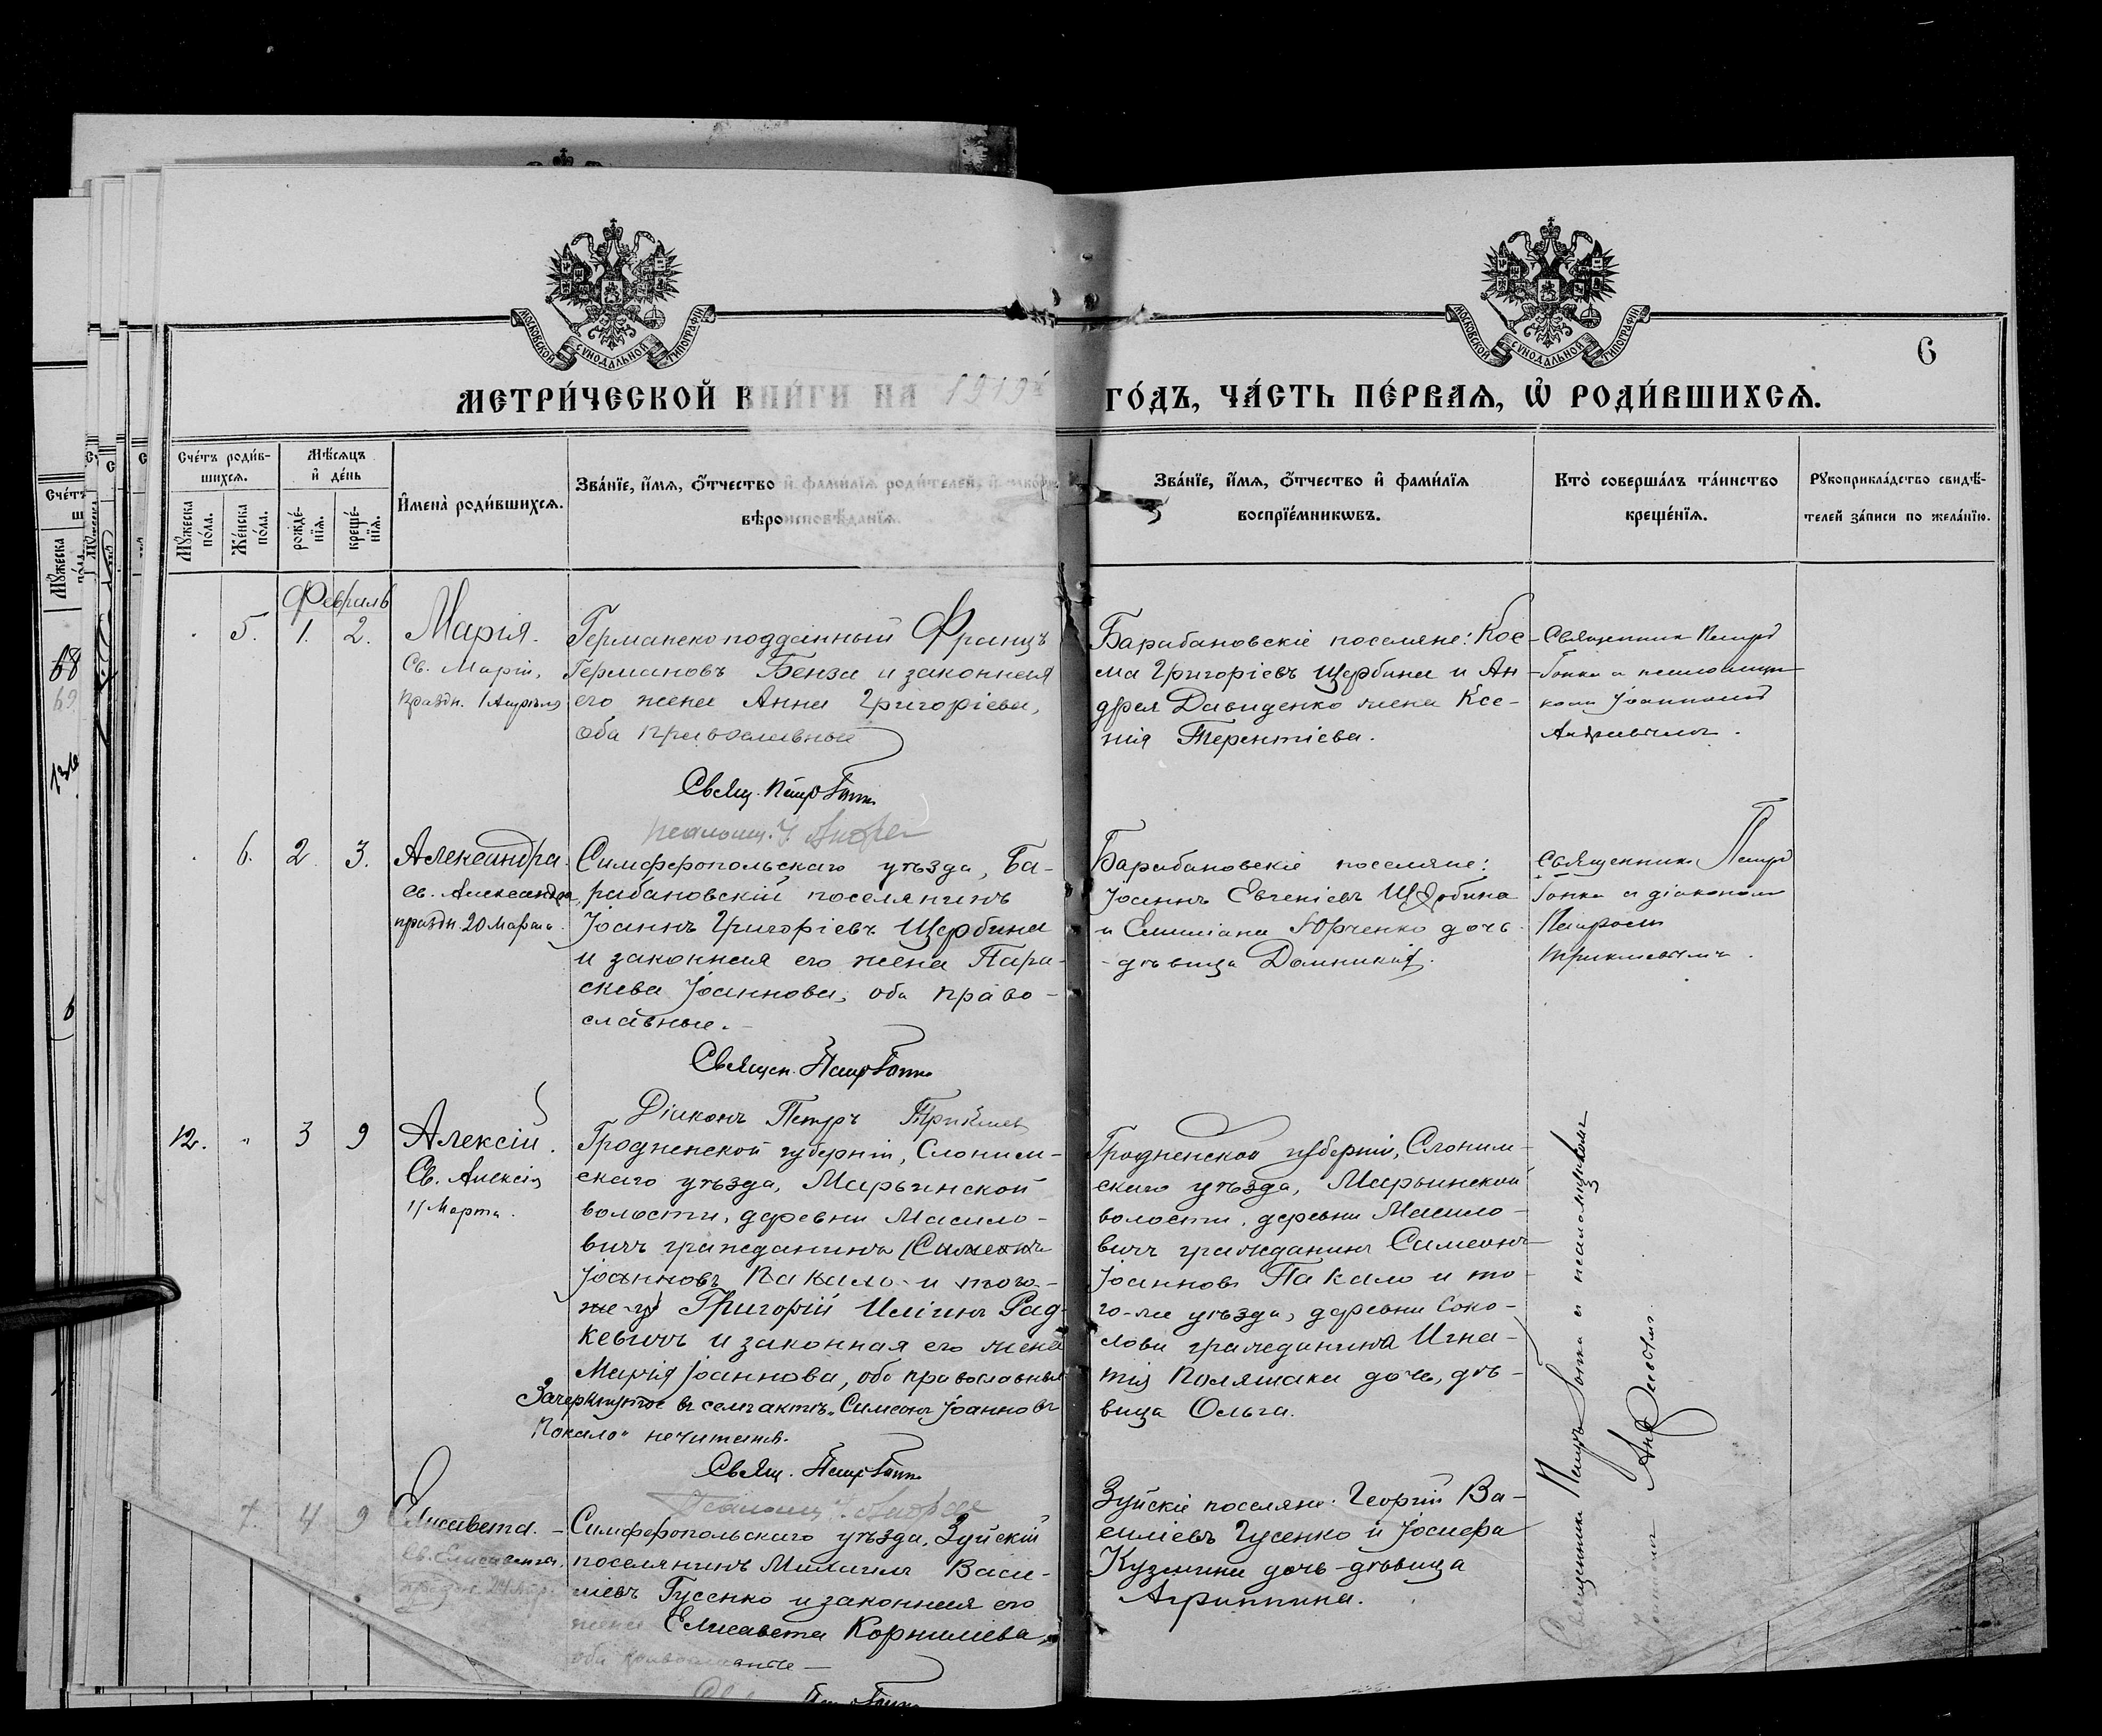 МОСКОВСКОЙ СѴНОДАЛЬНОЙ ТИПОГРАФІИ
МОСКОВСКОЙ СѴНОДАЛЬНОЙ ТИПОГРАФІИ
6
МЕТРИ́ЧЕСКОЙ КНИ́ГИ НА 1919й
ГО́ДЪ, ЧА́СТЬ ПЕ́РВАѦ, Ѡ РОДИ́ВШИХСѦ.
Сче́тъ роди́в-
шихсѧ.
Мѣ́сѧцъ
и де́нь
Мꙋ́жеска
по́ла.
Же́нска
по́ла.
рожде́-
нїѧ.
креще́-
нїѧ.
Имена̀ роди́вшихсѧ.
Зва́нїе, и́мѧ, о́тчество и фами́лїѧ роди́телей, и како́гѡ
вѣроисповѣ́данїѧ.
Зва́нїе, и́мѧ, о́тчество и фами́лїѧ
воспрїе́мникѡвъ.
Кто̀ соверша́лъ та́инство
креще́нїѧ.
Рꙋкоприкла́дство свидѣ́-
телей за́писи по жела́нїю.
Февраль
5. 1. 2.
Марія.
Св. Маріи,
праздн. 1 Апрѣля
Германскоподданный Францъ
Германовъ Бенза и законная
его жена Анна Григоріева,
оба православные
Свящ. Петръ Гопка
Барабановскіе поселяне: Кос-
ма Григоріевъ Щербина и Ан
дрея Давиденко жена Ксе-
нія Терентіева.
Священникъ Петръ
Гопка и псаломщи
комъ Іоанномъ
6. 2. 3.
Александра.
Св. Александра,
праздн. 20 Марта.
Симферопольскаго уѣзда, Ба-
рабановскій поселянинъ
Іоаннъ Григоріевъ Щербина
и законная его жена Пара-
скева Іоаннова, оба право-
славные.
Священ. Петръ Гопка
Діаконъ Петръ
Барабановскіе поселяне:
Іоаннъ Евгеніевъ Щербина
и Емиліана Юрченко дочь
-дѣвица Домникія.
Священникъ Петръ
Гопка и діакономъ
Петромъ
12. " 3 9
Алексій.
Св. Алексія
17 Марта.
Гродненской губерніи, Слоним-
скаго уѣзда, Марьинской
волости, деревни Масило-
вичъ гражданинъ (Симеонъ
Іоанновъ Пакало и того-
же у) Григорій Иліинъ Рад-
кевичъ и законная его жена
Марія Іоаннова, оба православные
Зачеркнутое въ семъ актѣ „Симеонъ Іоанновъ
Покало" нечитать.
Свящ. Петръ Гопка
Гродненской губерніи, Слоним-
скаго уѣзда, Марьинской
волости, деревни Масило-
вичъ гражданинъ Симеонъ
Іоанновъ Пакало и то-
го-же уѣзда, деревни Соко-
лова гражданина Игна-
тія Поляшака дочь, дѣ-
вица Ольга.
Священникъ Петръ Гопка и псаломщикомъ
7. 4 9
Елисавета.
Св. Елисавета,
Симферопольскаго уѣзда, Зуйскій
поселянинъ Михаилъ Васи-
ліевъ Гусенко и законная его
жена Елисавета Корниліева,
оба православные
Зуйскіе поселяне: Георгій Ва-
силіевъ Гусенко и Іосифа
Кузмина дочь-дѣвица
Агриппина.